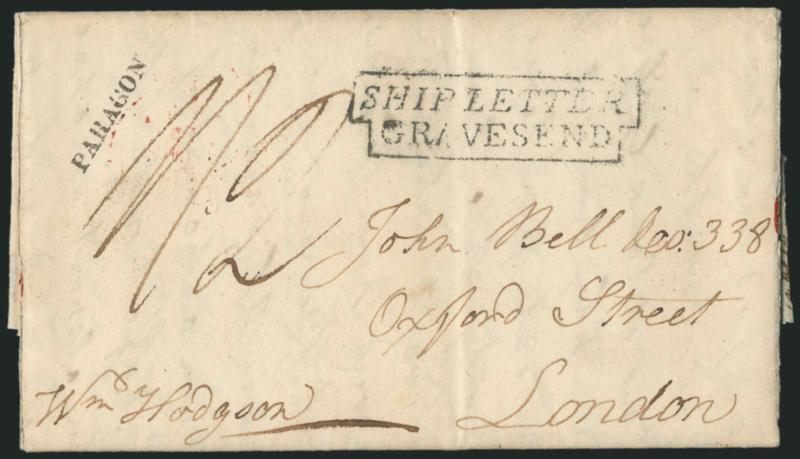 PARAGON
SHIP LETTER
GRAVESEND
1/2
John Bell 338
Oxford Street
London
Wm Hodgson